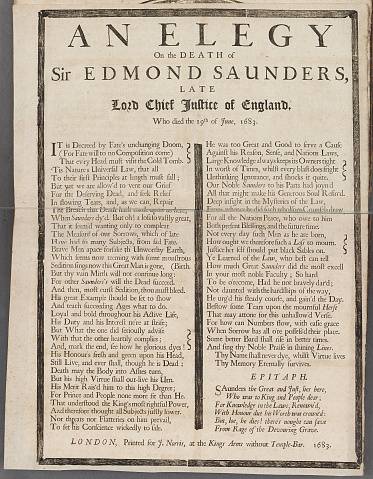 AN ELEGY
On the DEATH of
Sir EDMOND SAUNDERS,
LATE
Lord Chief Justice of England,
Who died the 19th of June, 1683.
IT is Decreed by Fate's unchanging Doom,
(For Fate will to no Composition come)
That evry Head must visit the Cold Tomb.
'Tis Nature's Universal Law, that all
To their first Principles at length must fall;
But yet we are allow'd to vent our Grief
For the Deserving Dead, and seek Relief
In flowing Tears, and, as we can, Repair
The Breach that Death hath made
When Saunders dy'd. But oh! a loss vastly great,
That it seem'd wanting only to compleat
The Measure of our Sorrows, which of late
Have had so many Subjects, from sad Fate.
Brave Men apace forsake th' Unworthy Earth,
Which seems now teeming with some monstrous
Sedition sings now this Great Man is gone, (Birth.
But thy vain Mirth will not continue long:
For other Saunders's will the Dead succeed.
And thou, most curst Sedition, thou must bleed.
His great Example should be set to show
And teach succeeding Ages what to do.
Loyal and bold throughout his Active Life,
His Duty and his Interest ne're at strife;
But What the one did sensibly advise
With that the other heartily complies;
And, mark the end, for how he glorious dyes!
His Honour's fresh and green upon his Head,
Still Live, and ever shall, though he is Dead:
Death may the Body into Ashes turn,
But his high Virtue shall out-live his Urn.
His Mere Rais'd him to this high Degree;
For Prince and People none more fit than He.
That understood the King's most rightful Power,
And therefore thought all Subjects justly lower.
Nor threats nor Flatteries on him prevail,
To set his Conscience wickedly to sale.
He was too Great and Good to serve a Cause
Against his Reason, Sense, and Nations Laws,
Large Knowledge always keeps its Owners tight
In worth of Times, whilst every blast does fright
Unthinking Ignorance, and shocks it quite.
Our Noble Saunders to his Parts had joyn'd
All that might make his Generous Soul Refin'd.
Deep insight in the Mysteries of the Law,
For all the Nation Peace, who owe to him
Both present Blessings, and the future time:
Not every day such Men as he are born,
How ought we therefore such a Loss to mourn.
Justice her self should put black Sables on.
Ye Learned of the Law, who best can tell
How much Great Saunders did the most excell
In your most noble Faculty; So hard
To be orecome, Had he not bravely dar'd;
Not daunted with the hardships of the way,
He urg'd his steady course, and gain'd the Day.
Bestow some Tears upon the mournful Herse
That may attone for this unhallow'd Verse.
For how can Numbers flow, with easie grace
When Sorrow has all ore possess'd their place.
Some better Bard shall rise in better times.
And sing thy Noble Praise in during Lines.
Thy Name shall never dye, whilst Virtue lives
Thy Memory Eternally survives.
EPITAPH.
SAunders the Great and Just, lies here,
Who was to King and People dear;
For Knowledge in the Laws, Renown'd,
With Honour due his Worth was crown'd:
But, he, he dies! there's nought can save
From Rage of the Devouring Grave.
LONDON, Printed for J. Norris, at the Kings Arms without Temple-Bar. 1683.